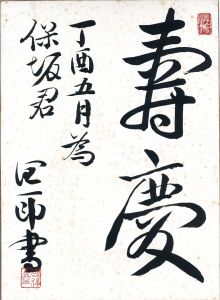 壽慶
丁酉五月為
保坂君